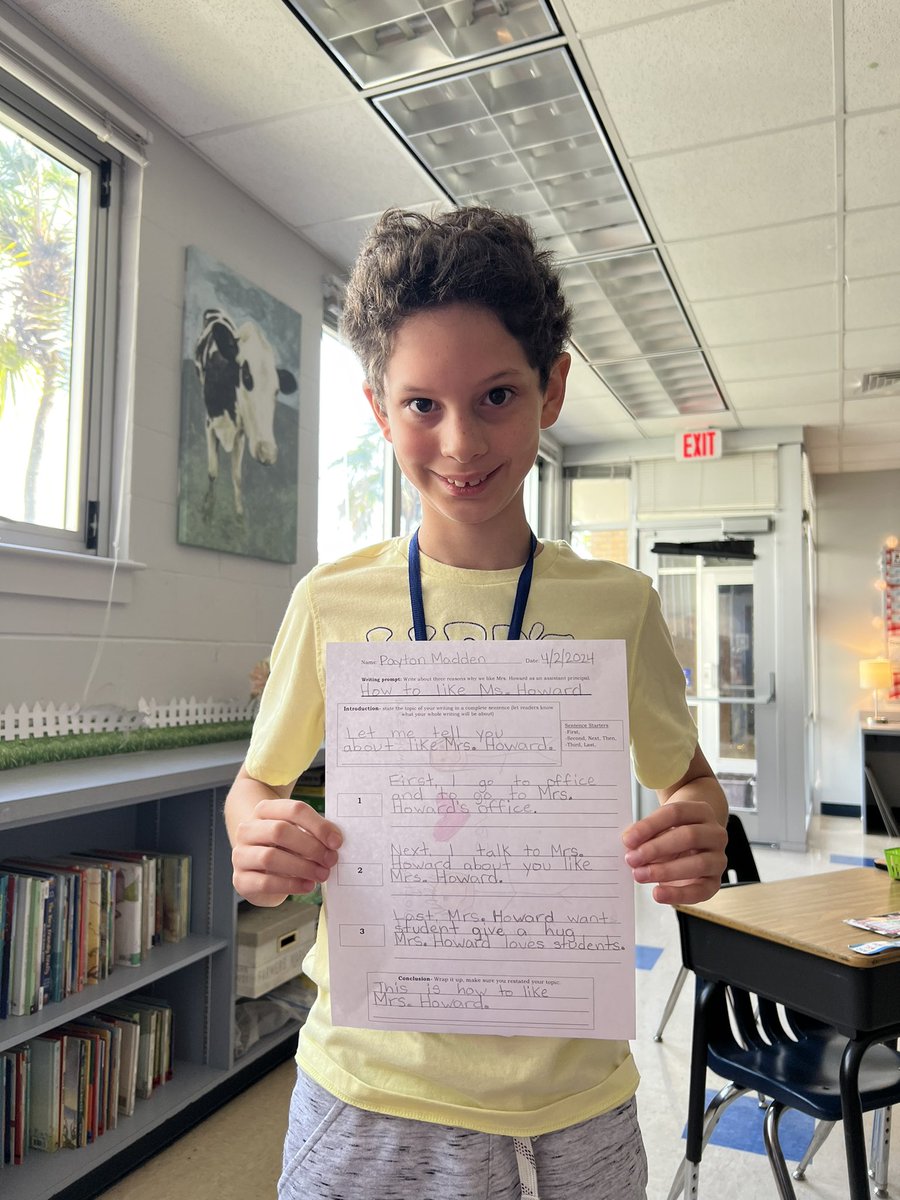 EXIT
Name: Payton Madden Date: 4/2/2024
Writing prompt: Write about three reasons why we like Mrs. Howard as an assistant principal.
How to like Ms. Howard
Introduction- state the topic of your writing in a complete sentence (let readers know
what your whole writing will be about)
Let me tell you
about like Mrs. Howard.
Sentence Starters
-First,
-Second, Next, Then,
-Third, Last,
1
First, I go to office
and to go to Mrs.
Howard's office.
2
Next, I talk to Mrs.
Howard about you like
Mrs. Howard.
3
Last, Mrs. Howard want
student give a hug
Mrs. Howard loves students.
Conclusion- Wrap it up, make sure you restated your topic.
This is how to like
Mrs. Howard.